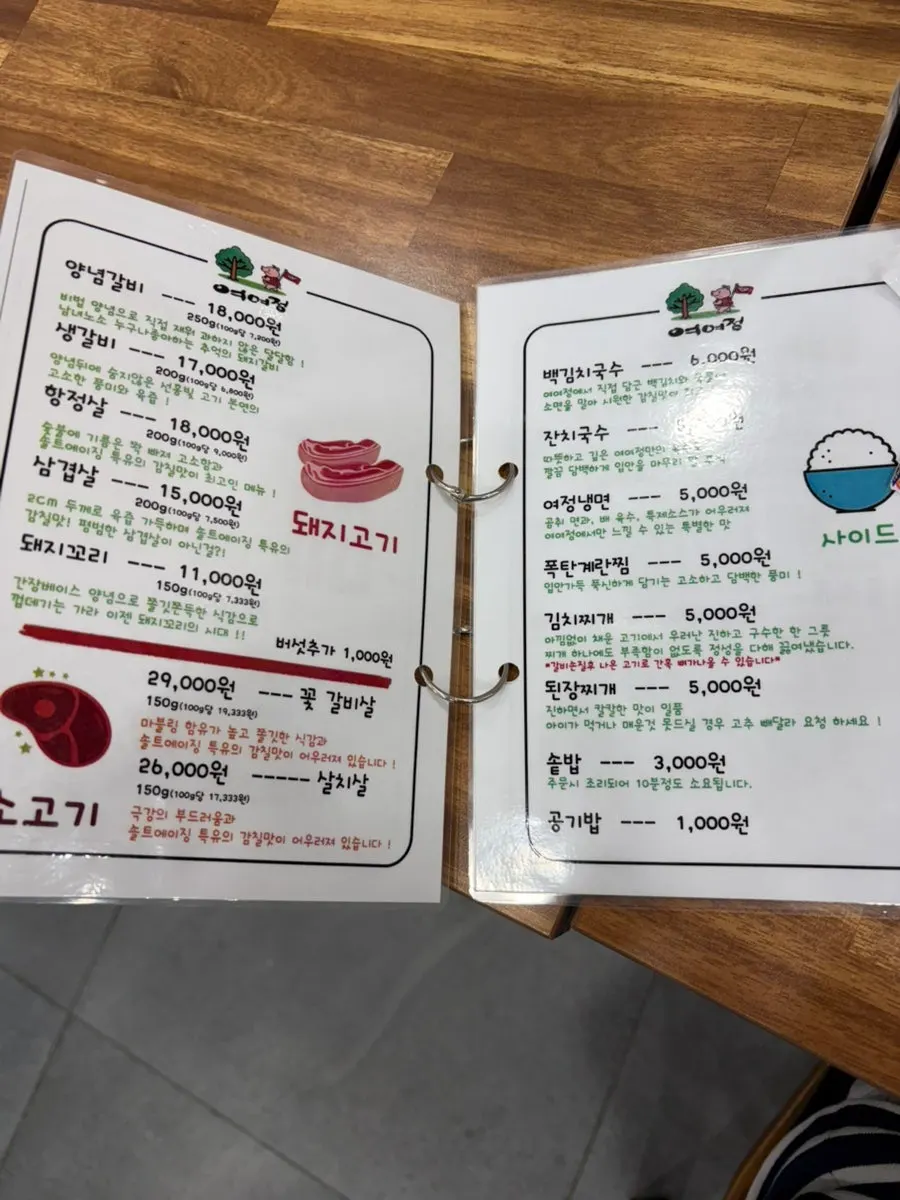 여여정
양념갈비 --- 18,000원
250g(100g당 7,200원)
비법 양념으로 직접 재워 과하지 않은 달달함 !
남녀노소 누구나좋아하는 추억의 돼지갈비
생갈비 --- 17,000원
200g(100g당 8,500원)
양념뒤에 숨지않은 선홍빛 고기 본연의
고소한 풍미와 육즙 !
항정살 --- 18,000원
200g(100g당 9,000원)
숯불에 기름은 쫙 빠져 고소함과
솔트에이징 특유의 감칠맛이 최고인 메뉴 !
삼겹살 --- 15,000원
200g(100g당 7,500원)
2CM 두께로 육즙 가득하며 솔트에이징 특유의
감칠맛! 평범한 삼겹살이 아닌걸?!
돼지꼬리 --- 11,000원
150g(100g당 7,333원)
간장베이스 양념으로 쫄깃쫀득한 식감으로
껍데기는 가라 이젠 돼지꼬리의 시대 !!
돼지고기
버섯추가 1,000원
29,000원 --- 꽃 갈비살
150g(100g당 19,333원)
마블링 함유가 높고 쫄깃한 식감과
솔트에이징 특유의 감칠맛이 어우러져 있습니다 !
26,000원 ----- 살치살
150g(100g당 17,333원)
극강의 부드러움과
솔트에이징 특유의 감칠맛이 어우러져 있습니다 !
소고기
여여정
백김치국수 --- 6,000원
여여정에서 직접 담근 백김치와
소면을 말아 시원한 감칠맛이
잔치국수
따뜻하고 깊은 여여정만의
깔끔 담백하게 입안을 마무리
여정냉면 --- 5,000원
곰취 면과, 배 육수, 특제소스가 어우러져
여여정에서만 느낄 수 있는 특별한 맛
폭탄계란찜 --- 5,000원
입안가득 푹신하게 담기는 고소하고 담백한 풍미 !
김치찌개 --- 5,000원
아낌없이 채운 고기에서 우러난 진하고 구수한 한 그릇
찌개 하나에도 부족함이 없도록 정성을 다해 끓여냈습니다.
*갈비손질후 나온 고기로 간혹 뼈가나올 수 있습니다*
된장찌개 --- 5,000원
진하면서 칼칼한 맛이 일품
아이가 먹거나 매운것 못드실 경우 고추 빼달라 요청 하세요 !
솥밥 --- 3,000원
주문시 조리되어 10분정도 소요됩니다.
공기밥 --- 1,000원
사이드